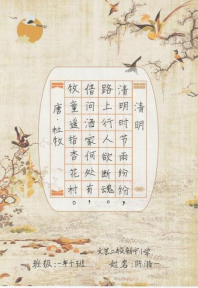 清明
清明时节雨纷纷，
路上行人欲断魂。
借问酒家何处有，
牧童遥指杏花村。
唐·杜牧
班级：一年十班
姓名：